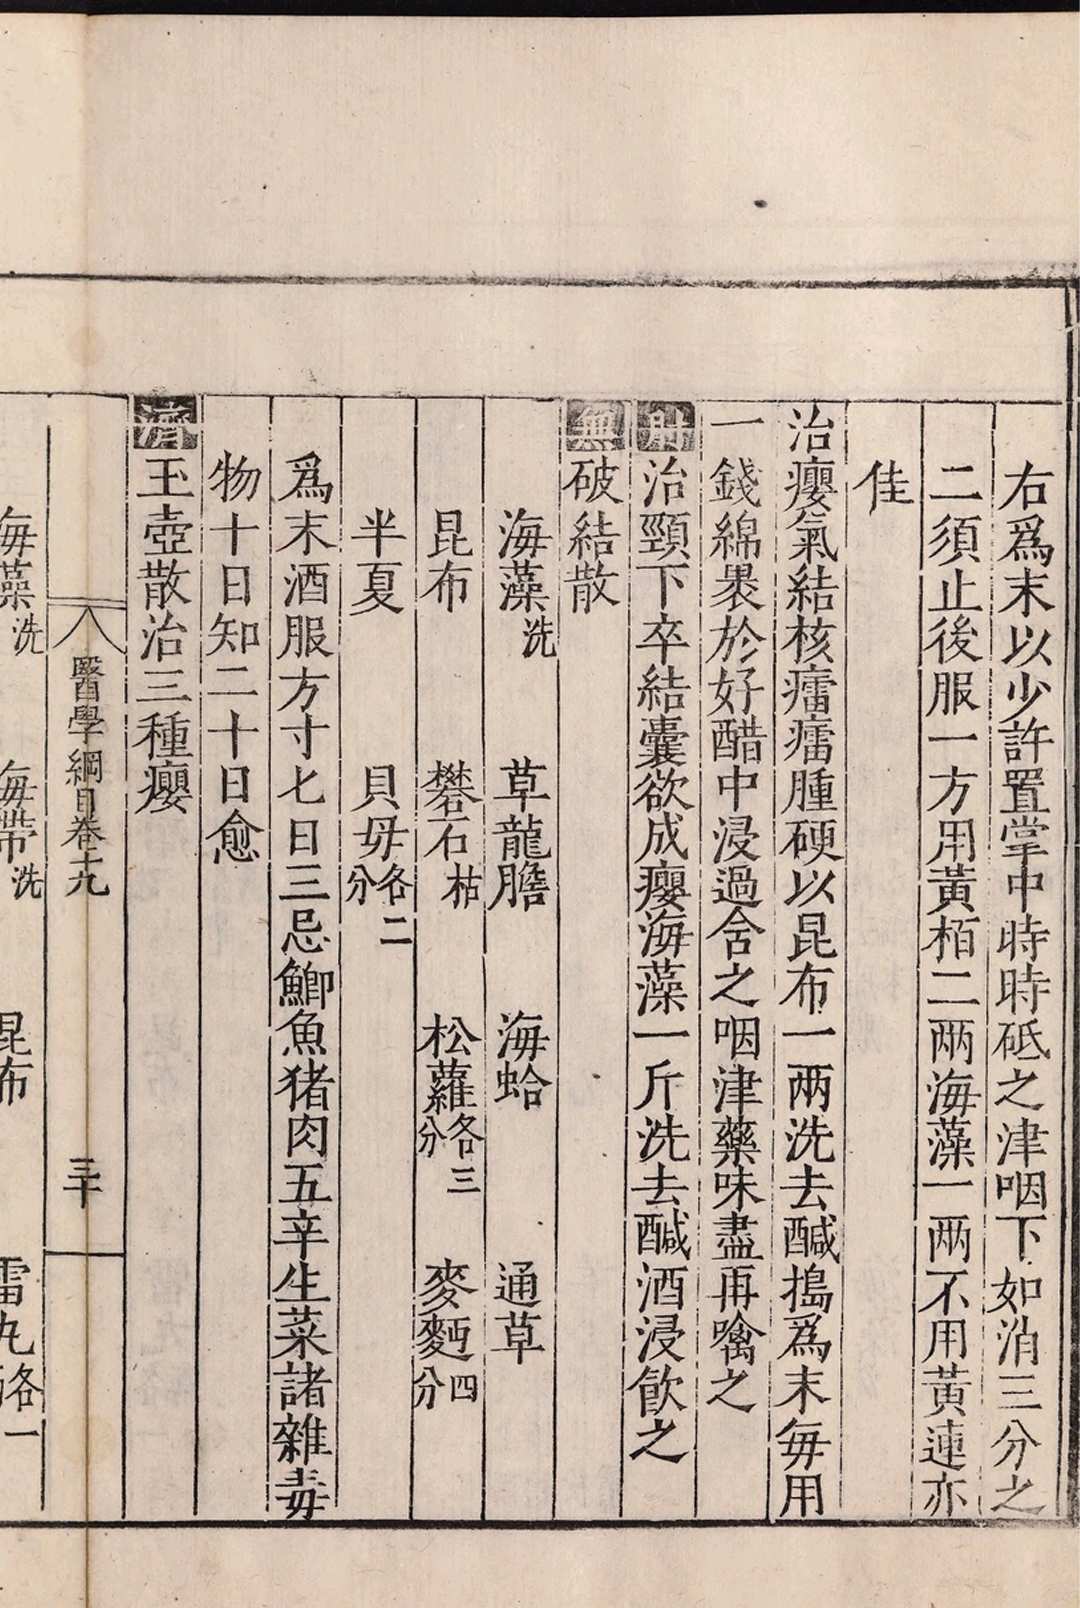 右爲末以少許置掌中時時砥之津咽下如消三分之
二須止後服一方用黃栢二兩海藻一兩不用黃連亦
佳
治癭氣結核癗癗腫硬以昆布一兩洗去鹹搗爲末每用
一錢綿褁於好醋中浸過含之咽津藥味盡再噙之
肘治頸下卒結囊欲成癭海藻一斤洗去鹹酒浸飮之
無破結散
海藻洗 草龍膽 海蛤 通草
昆布 礬石枯 松蘿各三分 麥麪四分
半夏 貝母各二分
爲末酒服方寸七日三忌鯽魚猪肉五辛生菜諸雜毒
物十日知二十日愈
濟玉壺散治三種癭
醫學綱目卷十九 三十
海藻洗 海帶洗 昆布 雷丸各一